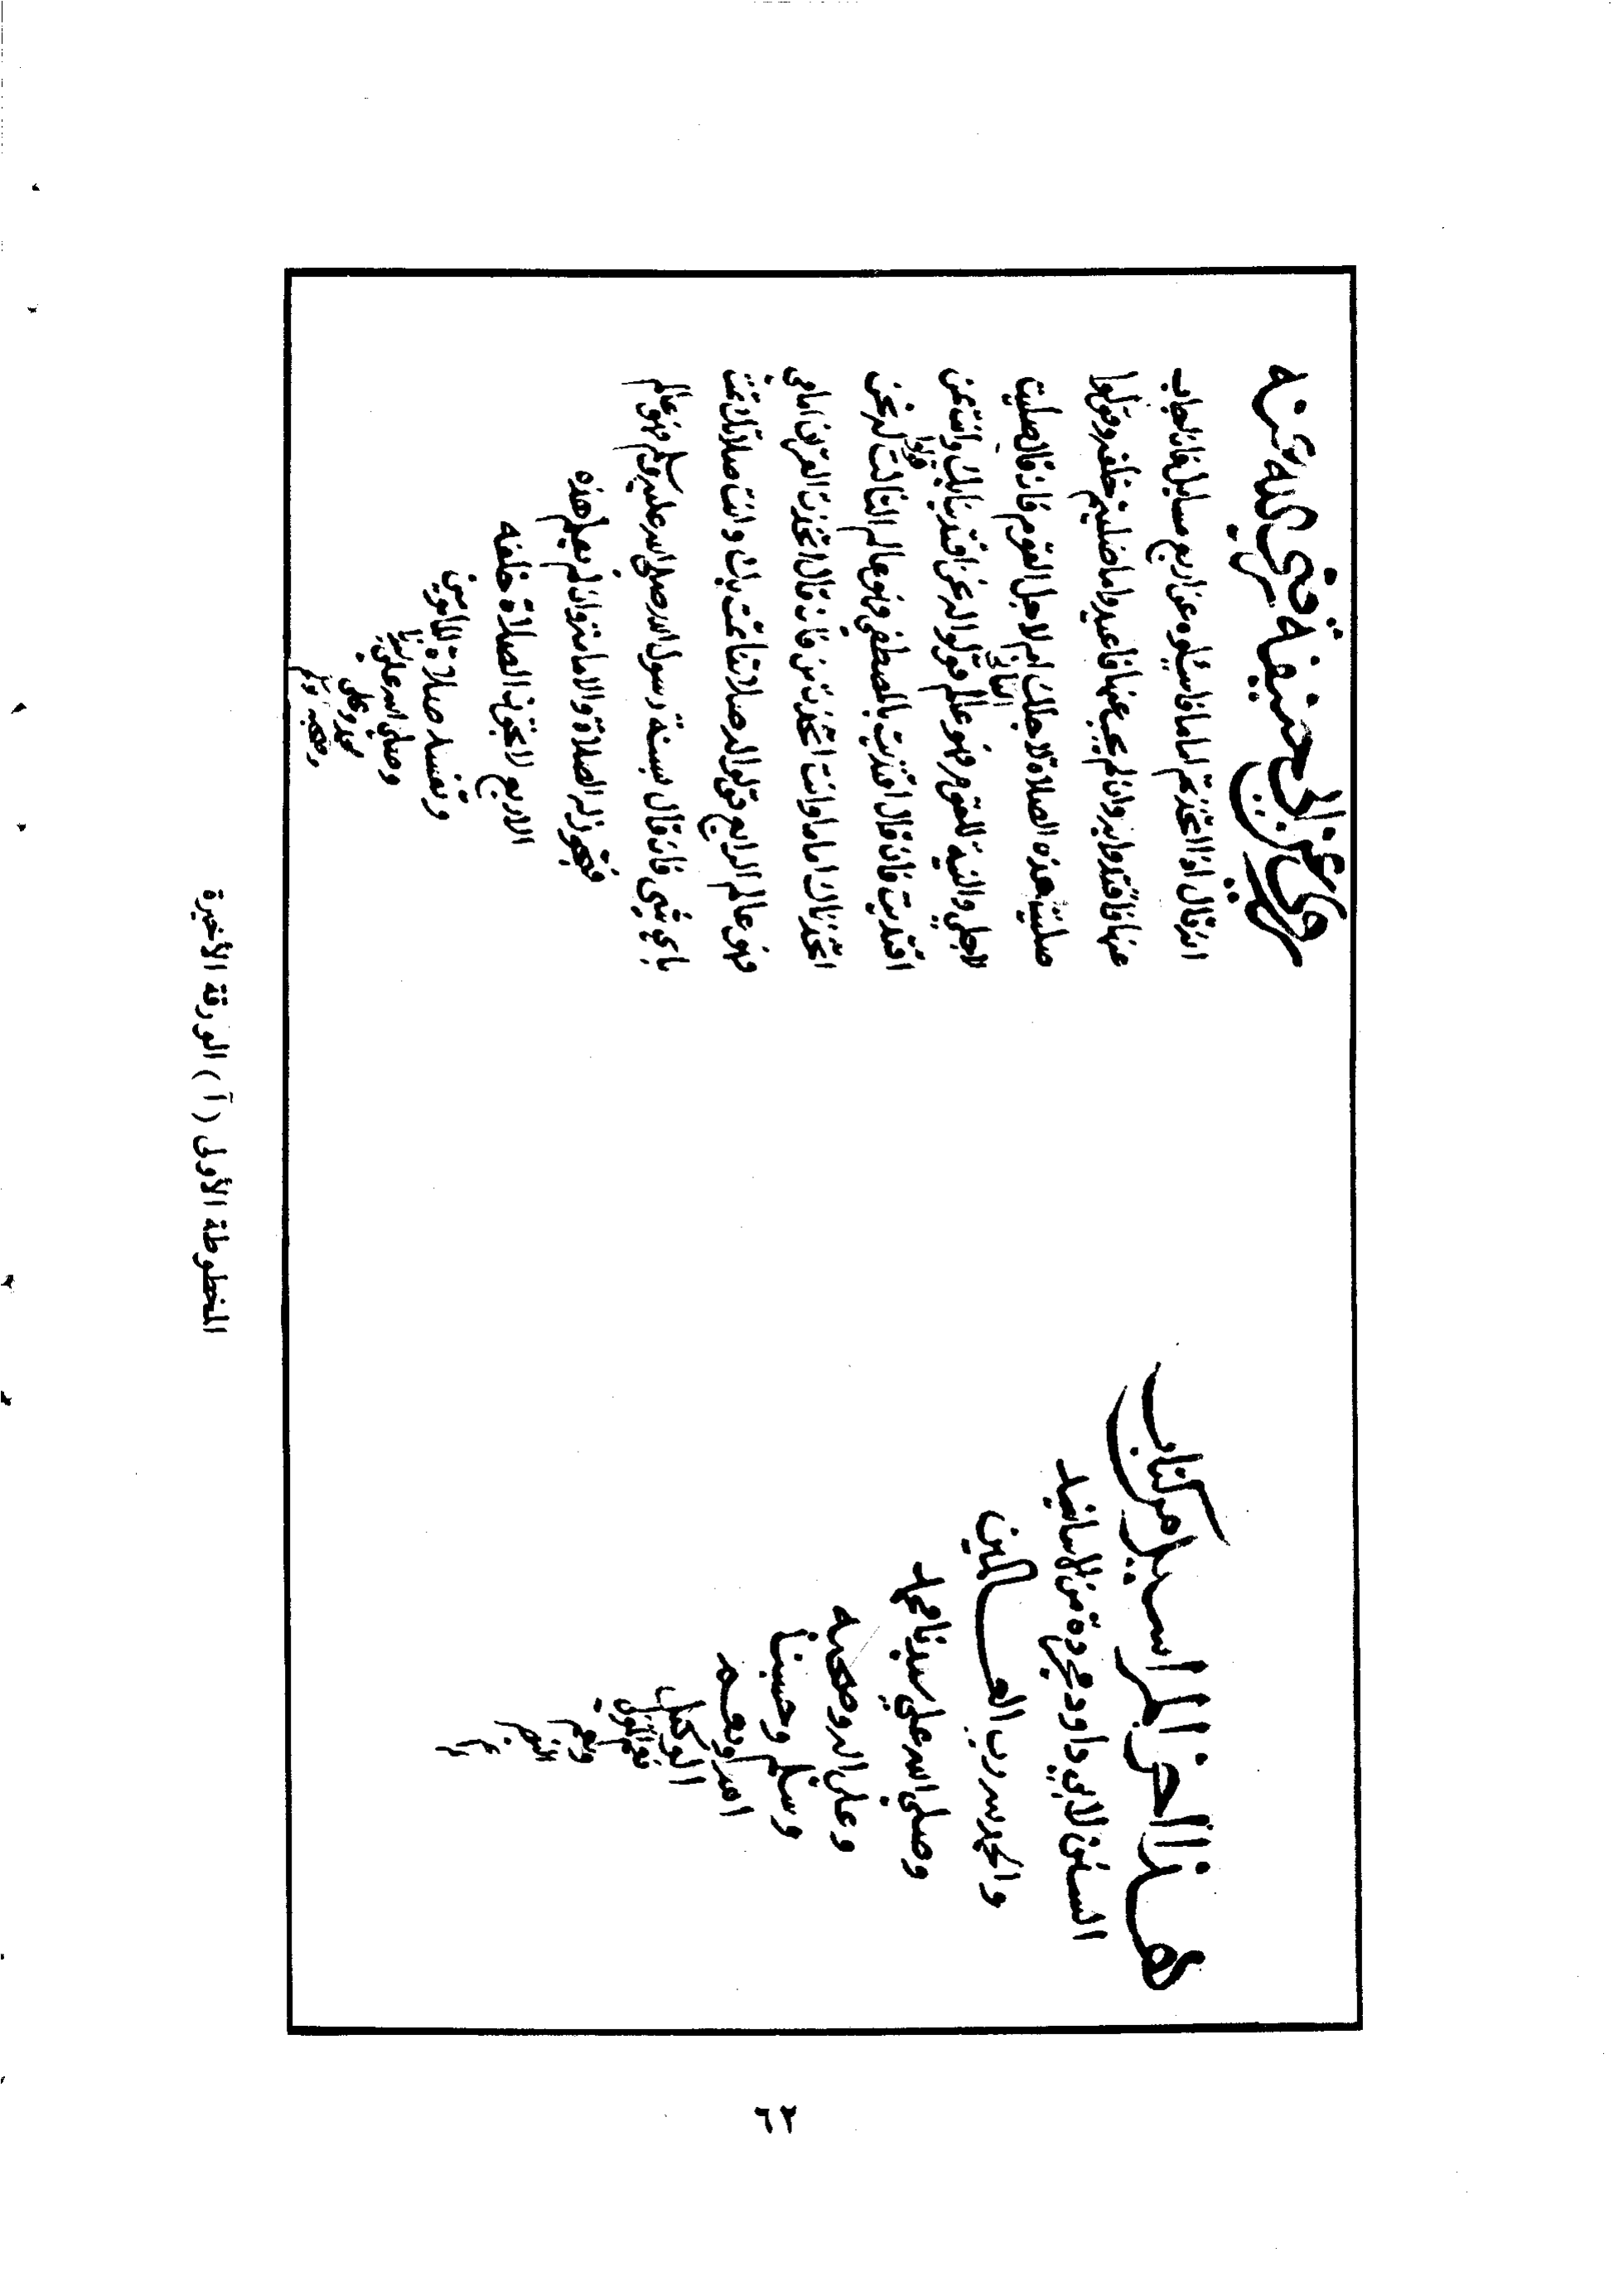 هذا اخر المراسيل من كتاب
السنن لابي داود مجردة من الاسانيد
والحمد لله رب العالمين
وصلى الله على سيدنا محمد
وعلى اله وصحبه
وسلم وحسبنا
الله ونعم
الوكيل
نعم المولى
ونعم
النصير
روي عن ابي حنيفة رضي الله عنه
انه قال اذا اتخذتم اماما فاسئلوه عن اربع مسايل فان اجاب
عنها فاقتدوا به وان لم يجب عنها فاعيدوا ما صليتم خلفه وقولوا
صليت هذه الصلاة لاجلك ام لاجل القوم فان قال صليت
لاجلي والنية للقوم فهو عالم الثاني قولوا له نحن اقتدينا بك وانت بمن
اقتديت فان قال اقتديت بالمصطفى فهو عالم الثالث قولوا له نحن
اتخذناك اماما وانت اتخذت من فان قال اتخذت القران امامي
فهو عالم الرابع قولوا له صلاتنا تمت بك وانت صلاتك تمت
باي شي فان قال بسنة رسول الله صلى الله عليه وسلم فهو عالم
فتجوز له الصلاة والامامة وان لم يعلم هذه
الاربع لا تجوز الصلاة خلفه
وتفسد صلاة المامومين
وصلى الله على سيدنا
محمد وعلى
وصحبه وسلم
المخطوطة الأولى ( آ ) الورقة الأخيرة
٦٢